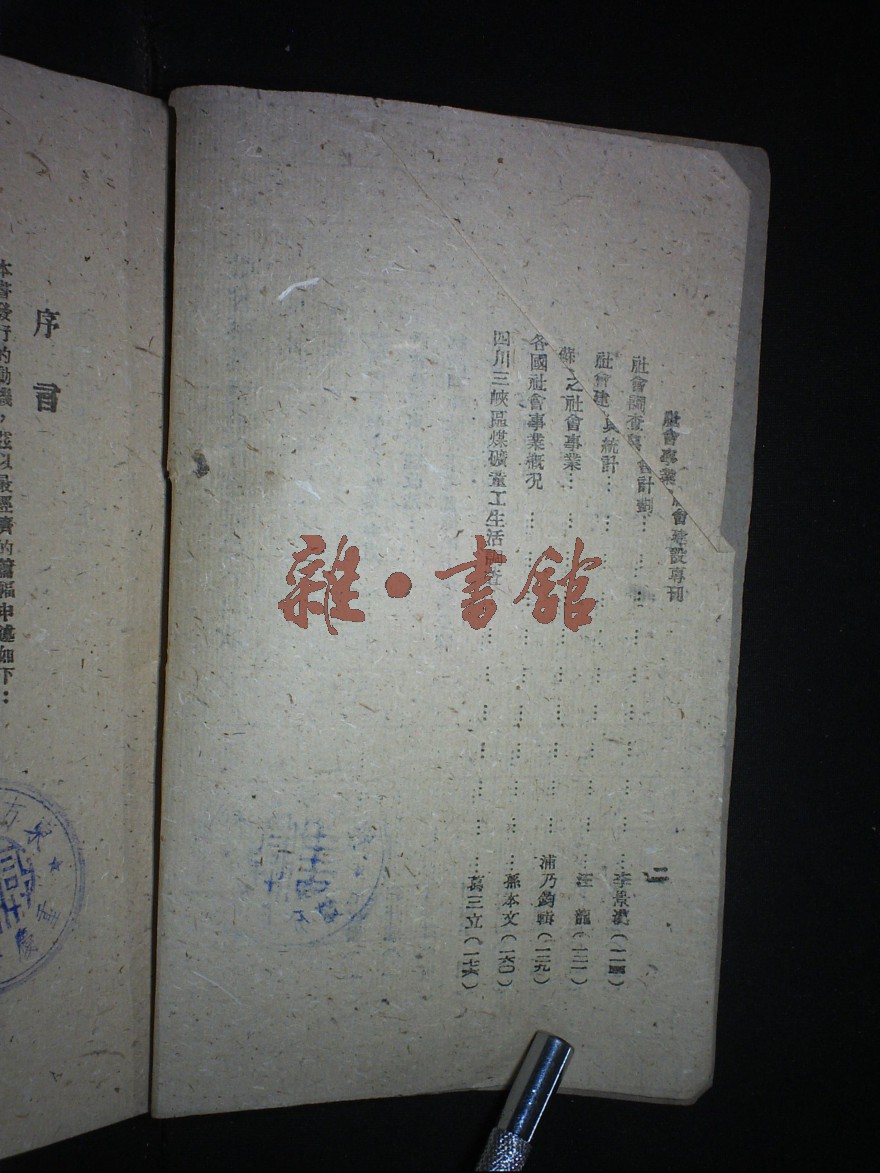 社會事業社會建設專刊
二
社會調查與社會計劃………………李景漢(一一四)
社會建 與統計………………汪 龍(一二一)
蘇 之社會事業………………浦乃鈞輯(一二九)
各國社會事業概況………………孫本文(一六〇)
四川三峽區煤礦童工生活調查………………萬三立(一七六)
序言
本書發行的動機,茲以最經濟的篇幅申述如下:
雜·書館
東方